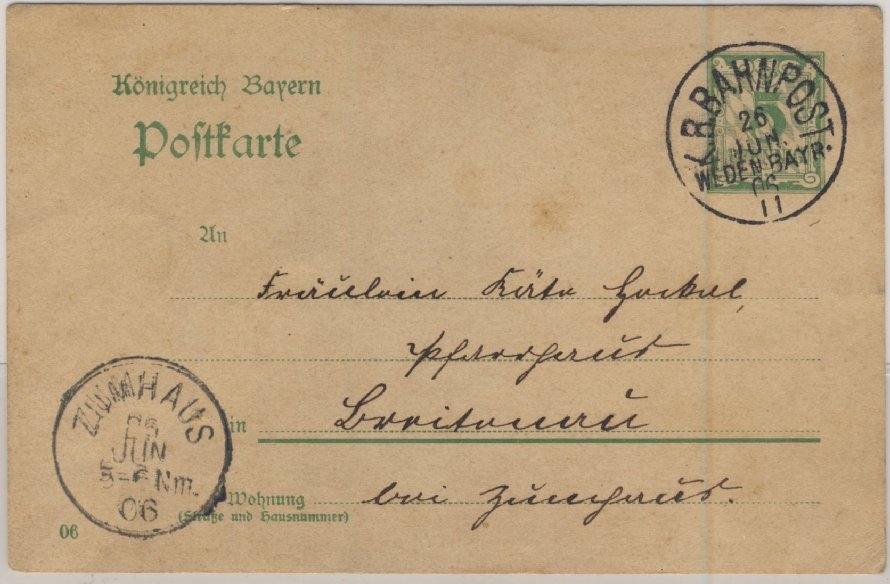 Königreich Bayern
Postkarte
K.B.BAHNPOST.
26
JUN.
WEIDEN-BAYR.
06
11
An
Fräulein Käte Hockel,
Pfarrhaus
in Breitenau
Wohnung bei Zumhaus.
(Straße und Hausnummer)
ZUMHAUS
26
JUN
5-6 Nm.
06
06